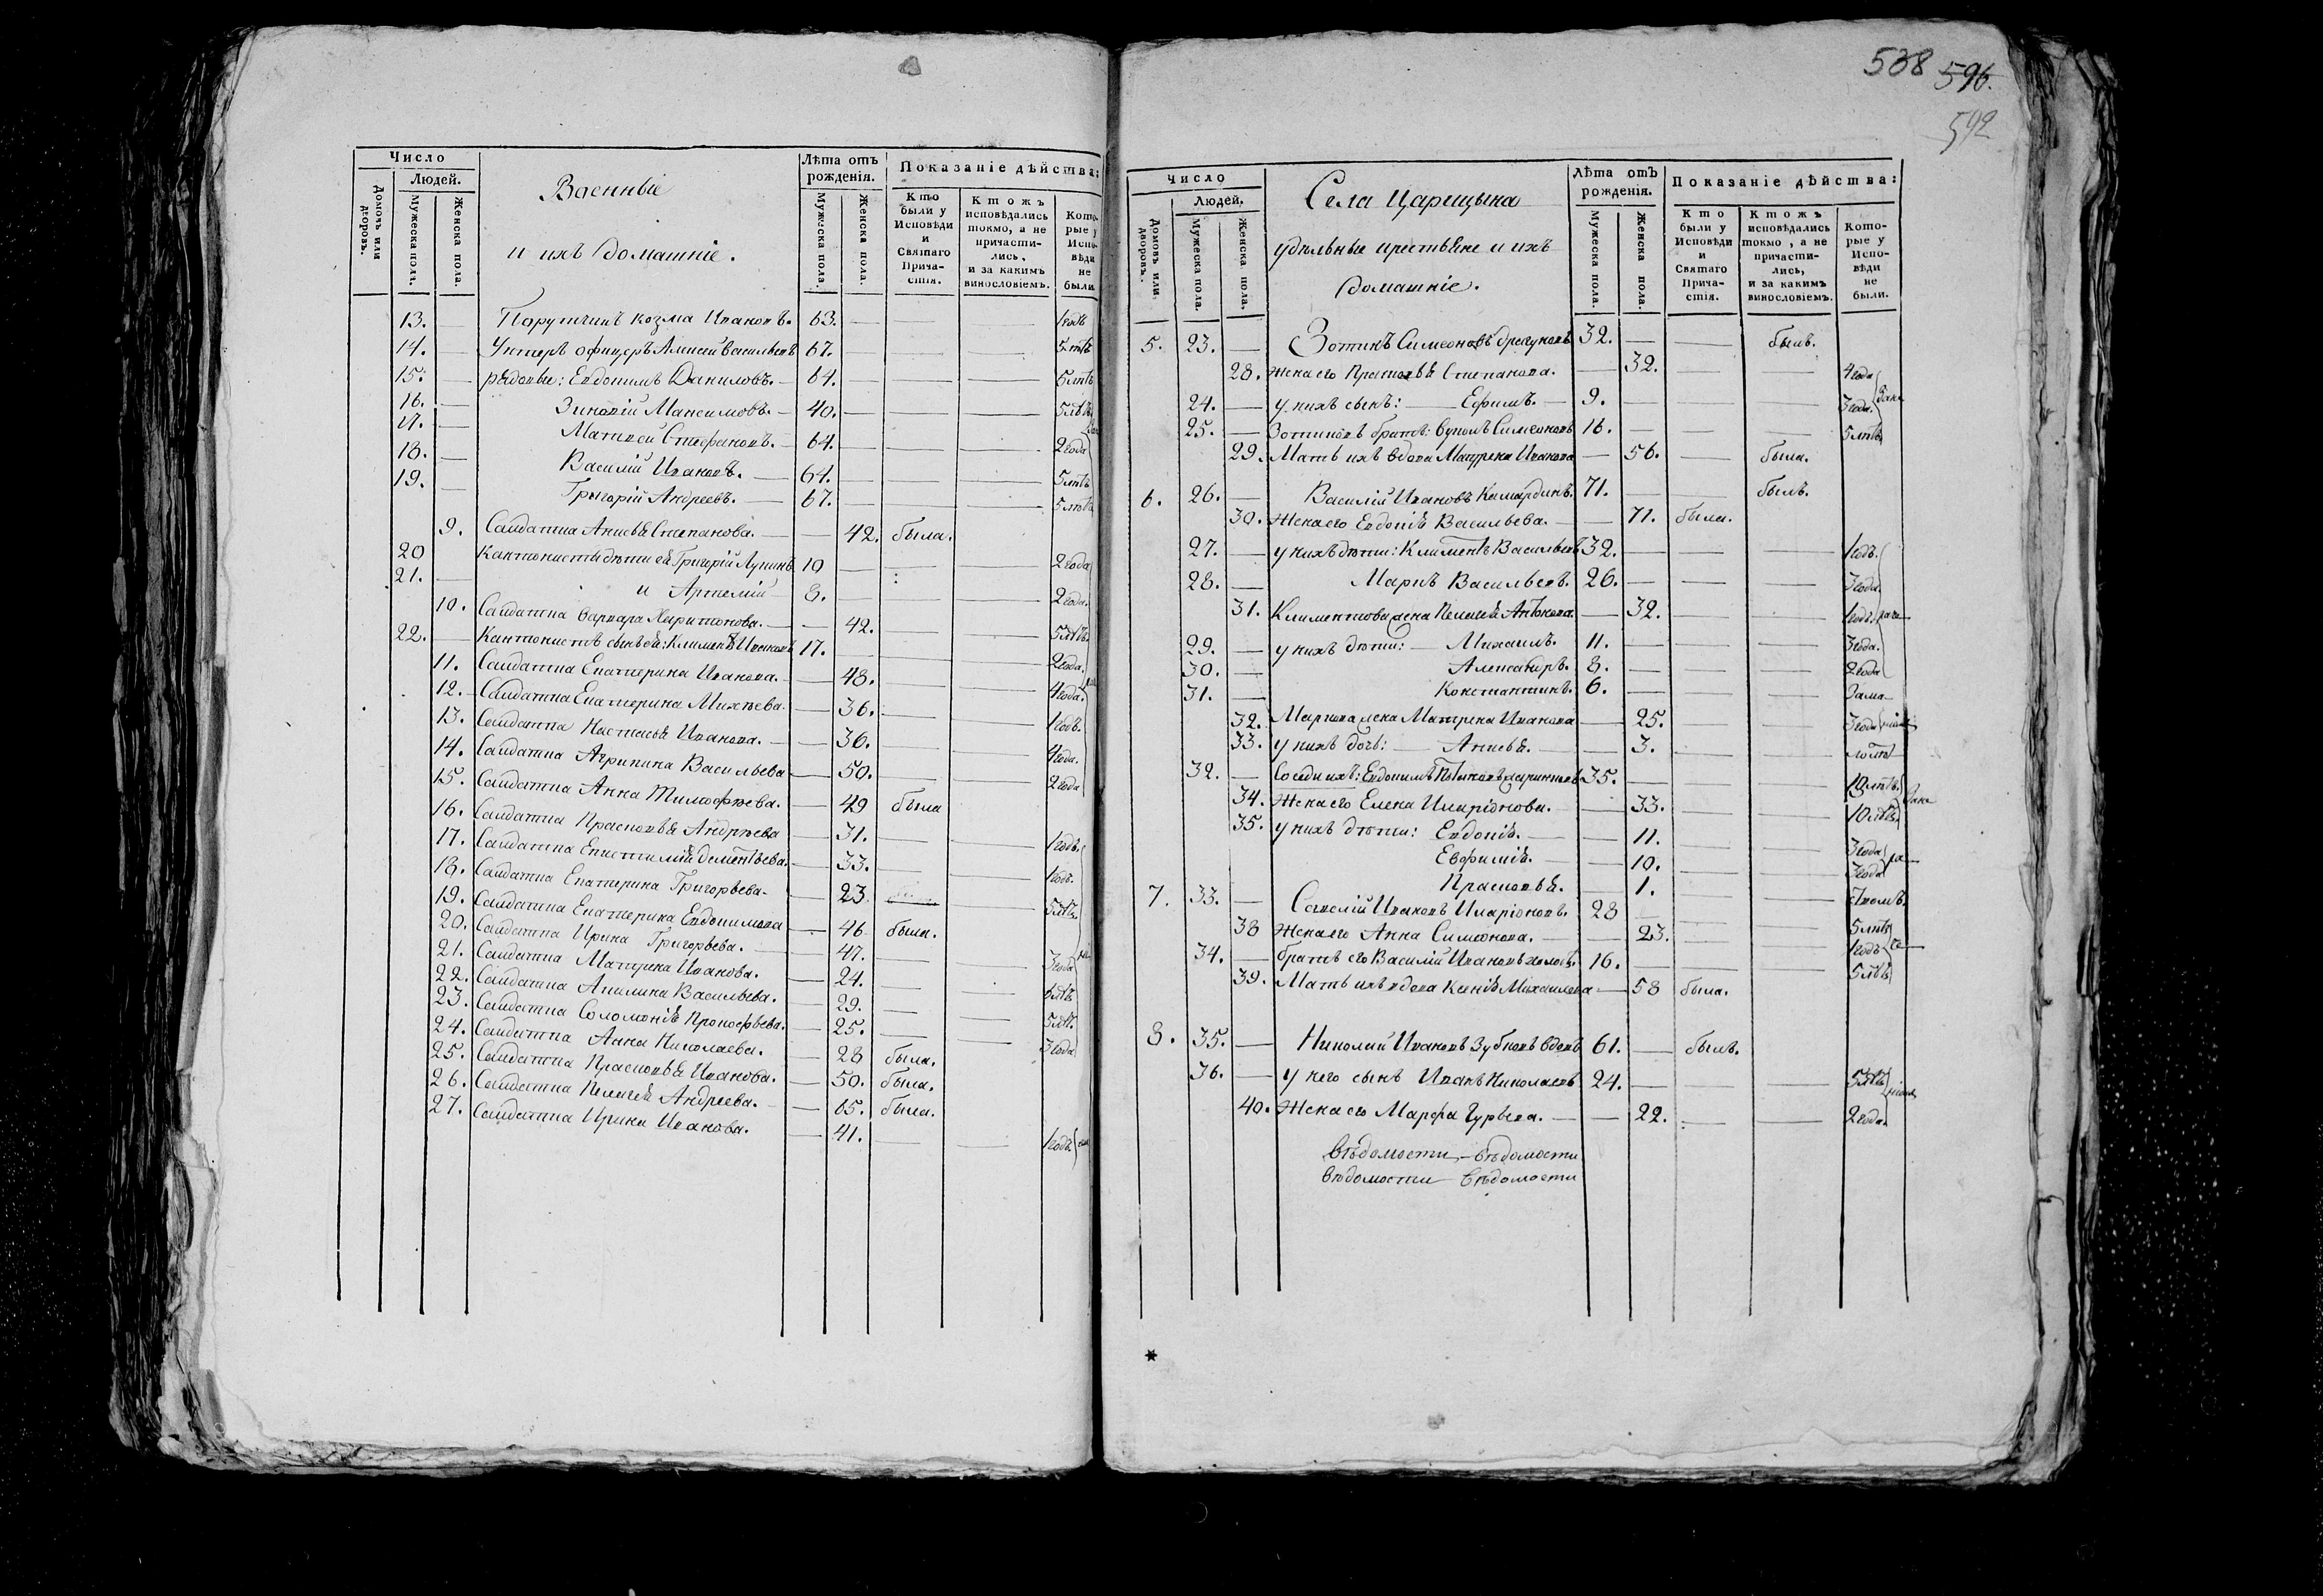 Число
Людей.
Домовъ или дворовъ.
Мужеска пола.
Женска пола.
Военныіе
и ихъ домашніе.
Лѣта отъ рожденія.
Мужеска пола.
Женска пола.
Показаніе дѣйства:
Кто были у Исповѣди и Святаго Причастія.
Ктожъ исповѣдались токмо, а не причастились, и за какимъ винословіемъ.
Которые у Исповѣди не были.
13. Порутчикъ Козма Ивановъ. 63. 1 годъ
14. Унтеръ офицеръ Алексей Васильевъ 67. 5 лѣтъ
15. рядовые: Евдокимъ Даниловъ. 64. 5 лѣтъ
16. Зиновій Максимовъ. 40. 5 лѣтъ
17. Матвей Стефановъ. 64. 2 года
18. Василій Ивановъ. 64. 5 лѣтъ
19. Григорій Андреевъ. 67. 5 лѣтъ
9. Салдатка Анисья Степанова. 42. была.
20 Кантонисты дѣти ея Григорій Лупинъ 10 2 года
21. и Артемій 8. 2 года.
10. Салдатка Варвара Харитонова. 42. 5 лѣтъ.
22. Кантонистъ сынъ ея: Климентъ Ивановъ 17. 2 года
11. Салдатка Екатерина Иванова. 48. 4 года.
12. Салдатка Екатерина Михѣева. 36. 1 годъ.
13. Салдатка Настасья Иванова. 36. 4 года.
14. Салдатка Агрипина Васильева 50. 2 года
15. Салдатка Анна Тимофѣева. 49 была
16. Салдатка Прасковья Андрѣева 31. 1 годъ.
17. Салдатка Епистимія Дементьева. 33. 1 годъ.
18. Салдатка Екатерина Григорьева. 23. 5 лѣтъ.
19. Салдатка Екатерина Евдокимова 46 была.
20. Салдатка Ирина Григорьева. 47. 3 года
21. Салдатка Матрена Иванова. 24. 5 лѣтъ
22. Салдатка Акилина Васильева. 29. 5 лѣт.
23. Салдатка Соломонія Прокофьева. 25. 3 года
24. Салдатка Анна Николаева. 28 была.
25. Салдатка Прасковья Иванова. 50. была.
26. Салдатка Пелагея Андреева. 65. была.
27. Салдатка Ирина Иванова. 41. 1 годъ.
538 596.
592
Число
Людей.
Домовъ или дворовъ.
Мужеска пола.
Женска пола.
Села Царицына
удѣльные крестьяне и ихъ
домашніе.
Лѣта отъ рожденія.
Мужеска пола.
Женска пола.
Показаніе дѣйства:
Кто были у Исповѣди и Святаго Причастія.
Ктожъ исповѣдались токмо, а не причастились, и за какимъ винословіемъ.
Которые у Исповѣди не были.
5. 23. Зотикъ Симеоновъ Драгуновъ 32. былъ.
28. Жена его Прасковья Степанова. 32. 4 года
24. у нихъ сынъ: Ефимъ. 9. 3 года.
25. Зотиковъ братъ: Вуколъ Симеоновъ 16. 5 лѣтъ
29. Мать ихъ вдова Матрена Иванова 56. была.
6. 26. Василій Ивановъ Камардинъ. 71. былъ.
30. Жена его Евдокія Васильева. 71. была.
27. у нихъ дѣти: Климентъ Васильевъ 32. 1 годъ.
28. Маркъ Васильевъ. 26. 3 года.
31. Климентова жена Пелагея Антонова. 32. 1 годъ.
29. у нихъ дѣти: Михаилъ. 11. 3 года.
30. Александръ. 8. 2 года
31. Константинъ. 6.
32. Маркова жена Матрена Иванова 25. 3 года
33. у нихъ дочь: Анисья. 3.
32. Соседи ихъ: Евдокимъ 35. 10 лѣтъ.
34. Жена его Елена Иларіонова. 33. 10 лѣтъ
35. у нихъ дѣти: Евдокія. 11. 3 года
Евфимія. 10. 3 года
Прасковья. 1.
7. 33. Савелій Ивановъ Иларіоновъ. 28 5 лѣтъ
38 Жена его Анна Симеонова. 23. 1 годъ
34. братъ его Василій Ивановъ холостъ. 16. 5 лѣтъ
39. Мать ихъ вдова Ксенія Михаилова 58 была.
8. 35. Николай Ивановъ Зубковъ вдовъ 61. былъ.
36. У него сынъ Иванъ Николаевъ 24. 5 лѣтъ
40. Жена его Марфа Гурьева. 22. 2 года.
вѣдомости, вѣдомости
вѣдомости вѣдомости
*